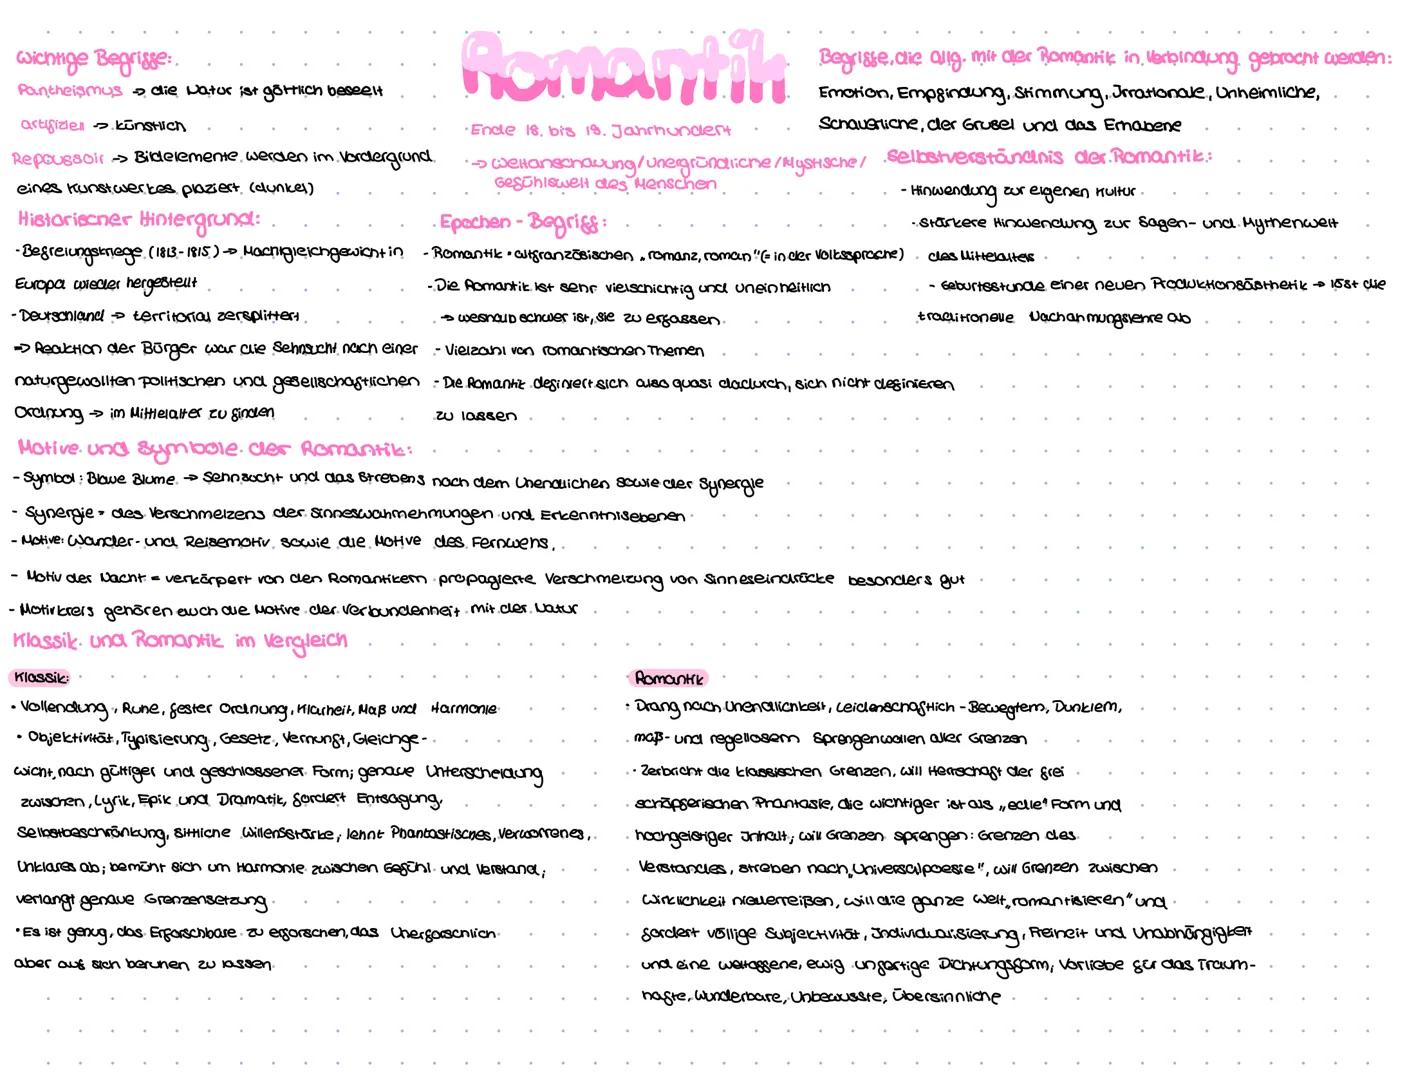 Romantik
Wichtige Begriffe:
Pantheismus → die Natur ist göttlich beseelt
artifiziell → künstlich
Repoussoir → Bildelemente werden im Vordergrund
eines Kunstwerkes plaziert (dunkel)
Historischer Hintergrund:
- Befreiungskriege (1813-1815) → Machtgleichgewicht in
Europa wieder hergestellt
- Deutschland → territorial zersplittert
=> Reaktion der Bürger war die Sehnsucht nach einer
naturgewollten politischen und gesellschaftlichen
Ordnung → im Mittelalter zu finden
- Ende 18. bis 19. Jahrhundert
- → Weltanschauung/unergründliche/Mystische/
Gefühlswelt des Menschen
Epochen-Begriff:
- Romantik = altfranzösischen „romanz, roman" (= in der Volkssprache)
- Die Romantik ist sehr vielschichtig und uneinheitlich
→ weshalb schwer ist, sie zu erfassen
- Vielzahl von romantischen Themen
- Die Romantik definiert sich also quasi dadurch, sich nicht definieren
zu lassen
Begriffe, die allg. mit der Romantik in Verbindung gebracht werden:
Emotion, Empfindung, Stimmung, Irrationale, Unheimliche,
Schauerliche, der Grusel und das Erhabene
Selbstverständnis der Romantik:
- Hinwendung zur eigenen Kultur
- stärkere Hinwendung zur Sagen- und Mythenwelt
des Mittelalters
- Geburtsstunde einer neuen Produktionsästhetik → löst die
traditionelle Nachahmungslehre ab
Motive und Symbole der Romantik:
- Symbol: Blaue Blume → Sehnsucht und das Strebens nach dem Unendlichen sowie der Synergie
- Synergie = des Verschmelzens der Sinneswahrnehmungen und Erkenntnisebenen
- Motive: Wander- und Reisemotiv sowie die Motive des Fernwehs,
- Motiv der Nacht = verkörpert von den Romantikern propagierte Verschmelzung von Sinneseindrücke besonders gut
- Motivkreis gehören auch die Motive der Verbundenheit mit der Natur
Klassik und Romantik im Vergleich
Klassik:
• Vollendung, Ruhe, fester Ordnung, Klarheit, Maß und Harmonie
• Objektivität, Typisierung, Gesetz, Vernunft, Gleichge-
wicht, nach gültiger und geschlossener Form; genaue Unterscheidung
zwischen, Lyrik, Epik und Dramatik, fordert Entsagung,
Selbstbeschränkung, sittliche Willensstärke; lehnt Phantastisches, Verworrenes,
Unklares ab; bemüht sich um Harmonie zwischen Gefühl und Verstand;
verlangt genaue Grenzensetzung
• Es ist genug, das Erforschbare zu erforschen, das Unerforschlich
aber auf sich beruhen zu lassen
Romantik
• Drang nach Unendlichkeit, Leidenschaftlich-Bewegtem, Dunklem,
maß- und regellosem Sprengenwollen aller Grenzen
• Zerbricht die klassischen Grenzen, will Herrschaft der frei
schöpferischen Phantasie, die wichtiger ist als „edle" Form und
hochgeistiger Inhalt; will Grenzen sprengen: Grenzen des
Verstandes, streben nach „Universalpoesie", will Grenzen zwischen
Wirklichkeit niederreißen, will die ganze Welt „romantisieren" und
fordert völlige Subjektivität, Individualisierung, Freiheit und Unabhängigkeit
und eine weltoffene, ewig unfertige Dichtungsform; Vorliebe für das Traum-
hafte, Wunderbare, Unbewusste, Übersinnliche